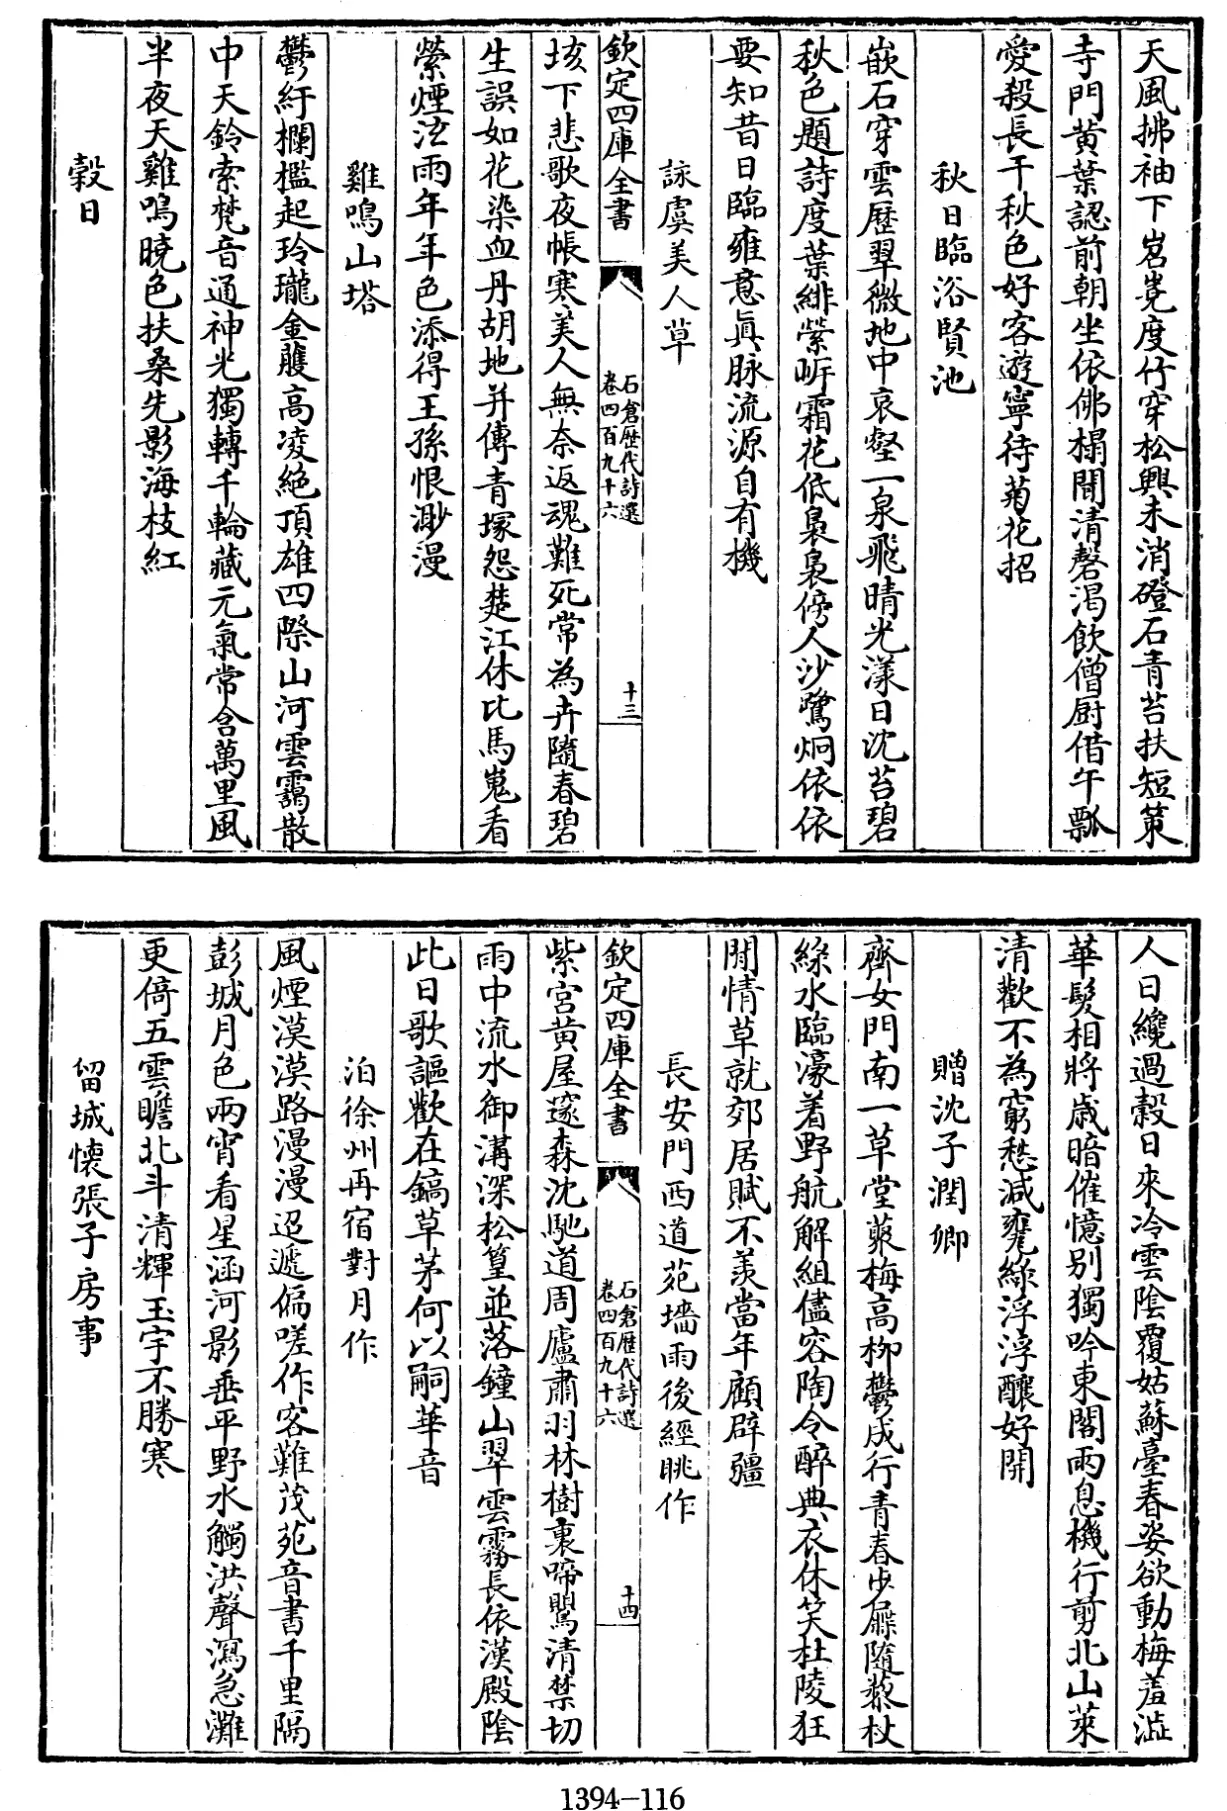 天風拂袖下岧嶤度竹穿松興未消磴石青苔扶短策
寺門黄葉認前朝坐依佛榻聞清磬渴飲僧厨借午瓢
愛殺長干秋色好客遊寧待菊花招
秋日臨浴賢池
嵌石穿雲歴翠微地中哀壑一泉飛晴光漾日沈苔碧
秋色題詩度葉緋縈㟁霜花低裊裊傍人沙鷺炯依依
要知昔日臨雍意眞脉流源自有機
詠虞美人草
欽定四庫全書
石倉歴代詩選
卷四百九十六
十三
垓下悲歌夜帳寒美人無奈返魂難死常為卉隨春碧
生誤如花染血丹胡地并傳青塚怨楚江休比馬嵬看
縈煙泣雨年年色添得王孫恨渺漫
雞鳴山塔
鬱紆欄檻起玲瓏金䨼高凌絶頂雄四際山河雲靄散
中天鈴索梵音通神光獨轉千輪藏元氣常含萬里風
半夜天雞鳴曉色扶桑先影海枝紅
穀日
人日纔過穀日來冷雲陰覆姑蘇臺春姿欲動梅羞澁
華髮相將歳暗催憶别獨吟東閣雨息機行剪北山萊
清歡不為窮愁減甕綠浮浮釀好開
贈沈子潤卿
齊女門南一草堂蘂梅高柳鬱成行青春步屧隨藜杖
綠水臨濠着野航解組儘容陶令醉典衣休笑杜陵狂
閒情草就郊居賦不羨當年顧辟疆
長安門西道苑墻雨後經眺作
欽定四庫全書
石倉歴代詩選
卷四百九十六
十四
紫宮黄屋邃森沈馳道周廬肅羽林樹裏啼鶯清禁切
雨中流水御溝深松篁並落鐘山翠雲霧長依漢殿陰
此日歌謳歡在鎬草茅何以嗣華音
泊徐州再宿對月作
風煙漠漠路漫漫迢遞偏嗟作客難茂苑音書千里隔
彭城月色兩宵看星涵河影垂平野水觸洪聲瀉急灘
更倚五雲瞻北斗清輝玉宇不勝寒
留城懐張子房事
1394-116